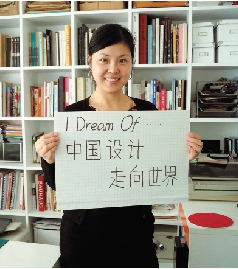 I Dream Of ....
中国设计
走向世界